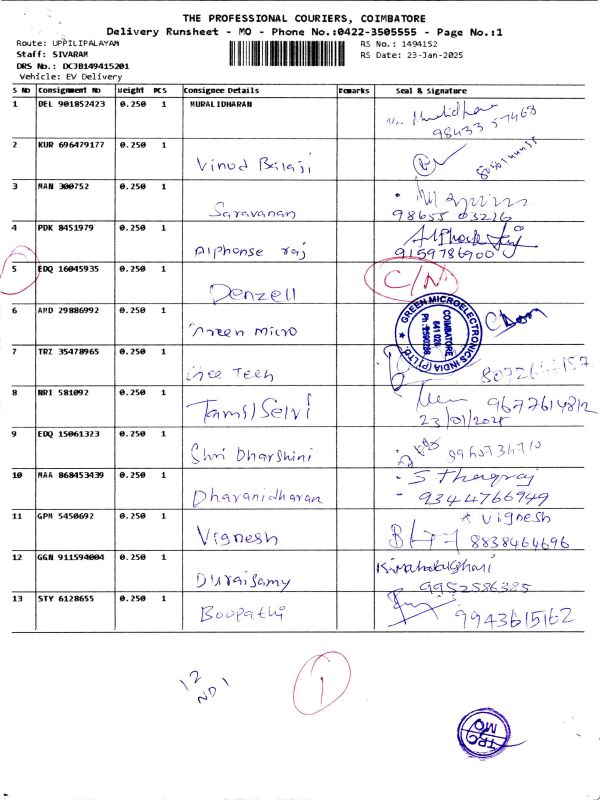 THE PROFESSIONAL COURIERS, COIMBATORE
Delivery Runsheet - MO - Phone No.:0422-3505555 - Page No.:1
Route: UPPILIPALAYAM
RS No.: 1494152
Staff: SIVARAM
RS Date: 23-Jan-2025
DRS No.: DCJB149415201
Vehicle: EV Delivery
S No Consignment No Weight PCS Consignee Details Remarks Seal & Signature
1 DEL 901852423 0.250 1 MURALIDHARAN
98433 57468
2 KUR 696479177 0.250 1 Vinod Balaji
3 MAN 300752 0.250 1 Saravanan
98655 03216
4 PDK 8451979 0.250 1 Alphonse raj
9159786900
5 EDQ 16045935 0.250 1 Denzell C/N
6 AMD 29886992 0.250 1 Green Micro
GREEN MICROELECTRONICS INDIA (P) LTD.
COIMBATORE
641 026
7 TRZ 35478965 0.250 1 Tech
8 NRI 581092 0.250 1 Tamil Selvi
9677614812
23/01/2025
9 EDQ 15061323 0.250 1 Shri Dharshini
10 MAA 868453439 0.250 1 Dharanidharan
S Thagraj
9344766949
11 GPM 5450692 0.250 1 Vignesh
Vignesh
8838464696
12 GGN 911594004 0.250 1 Duraisamy
9952586385
13 STY 6128655 0.250 1 Boopathi
9943615162
12
ND 1
1
TPC
MO